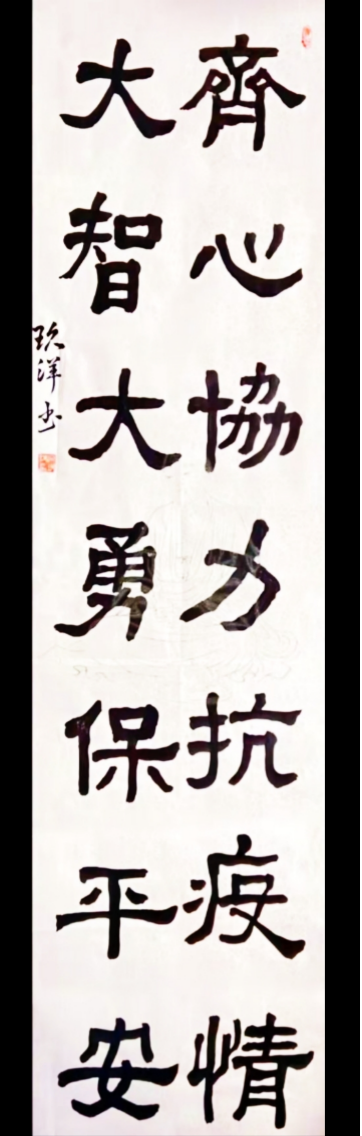 齊心協力抗疫情
大智大勇保平安
玖洋书